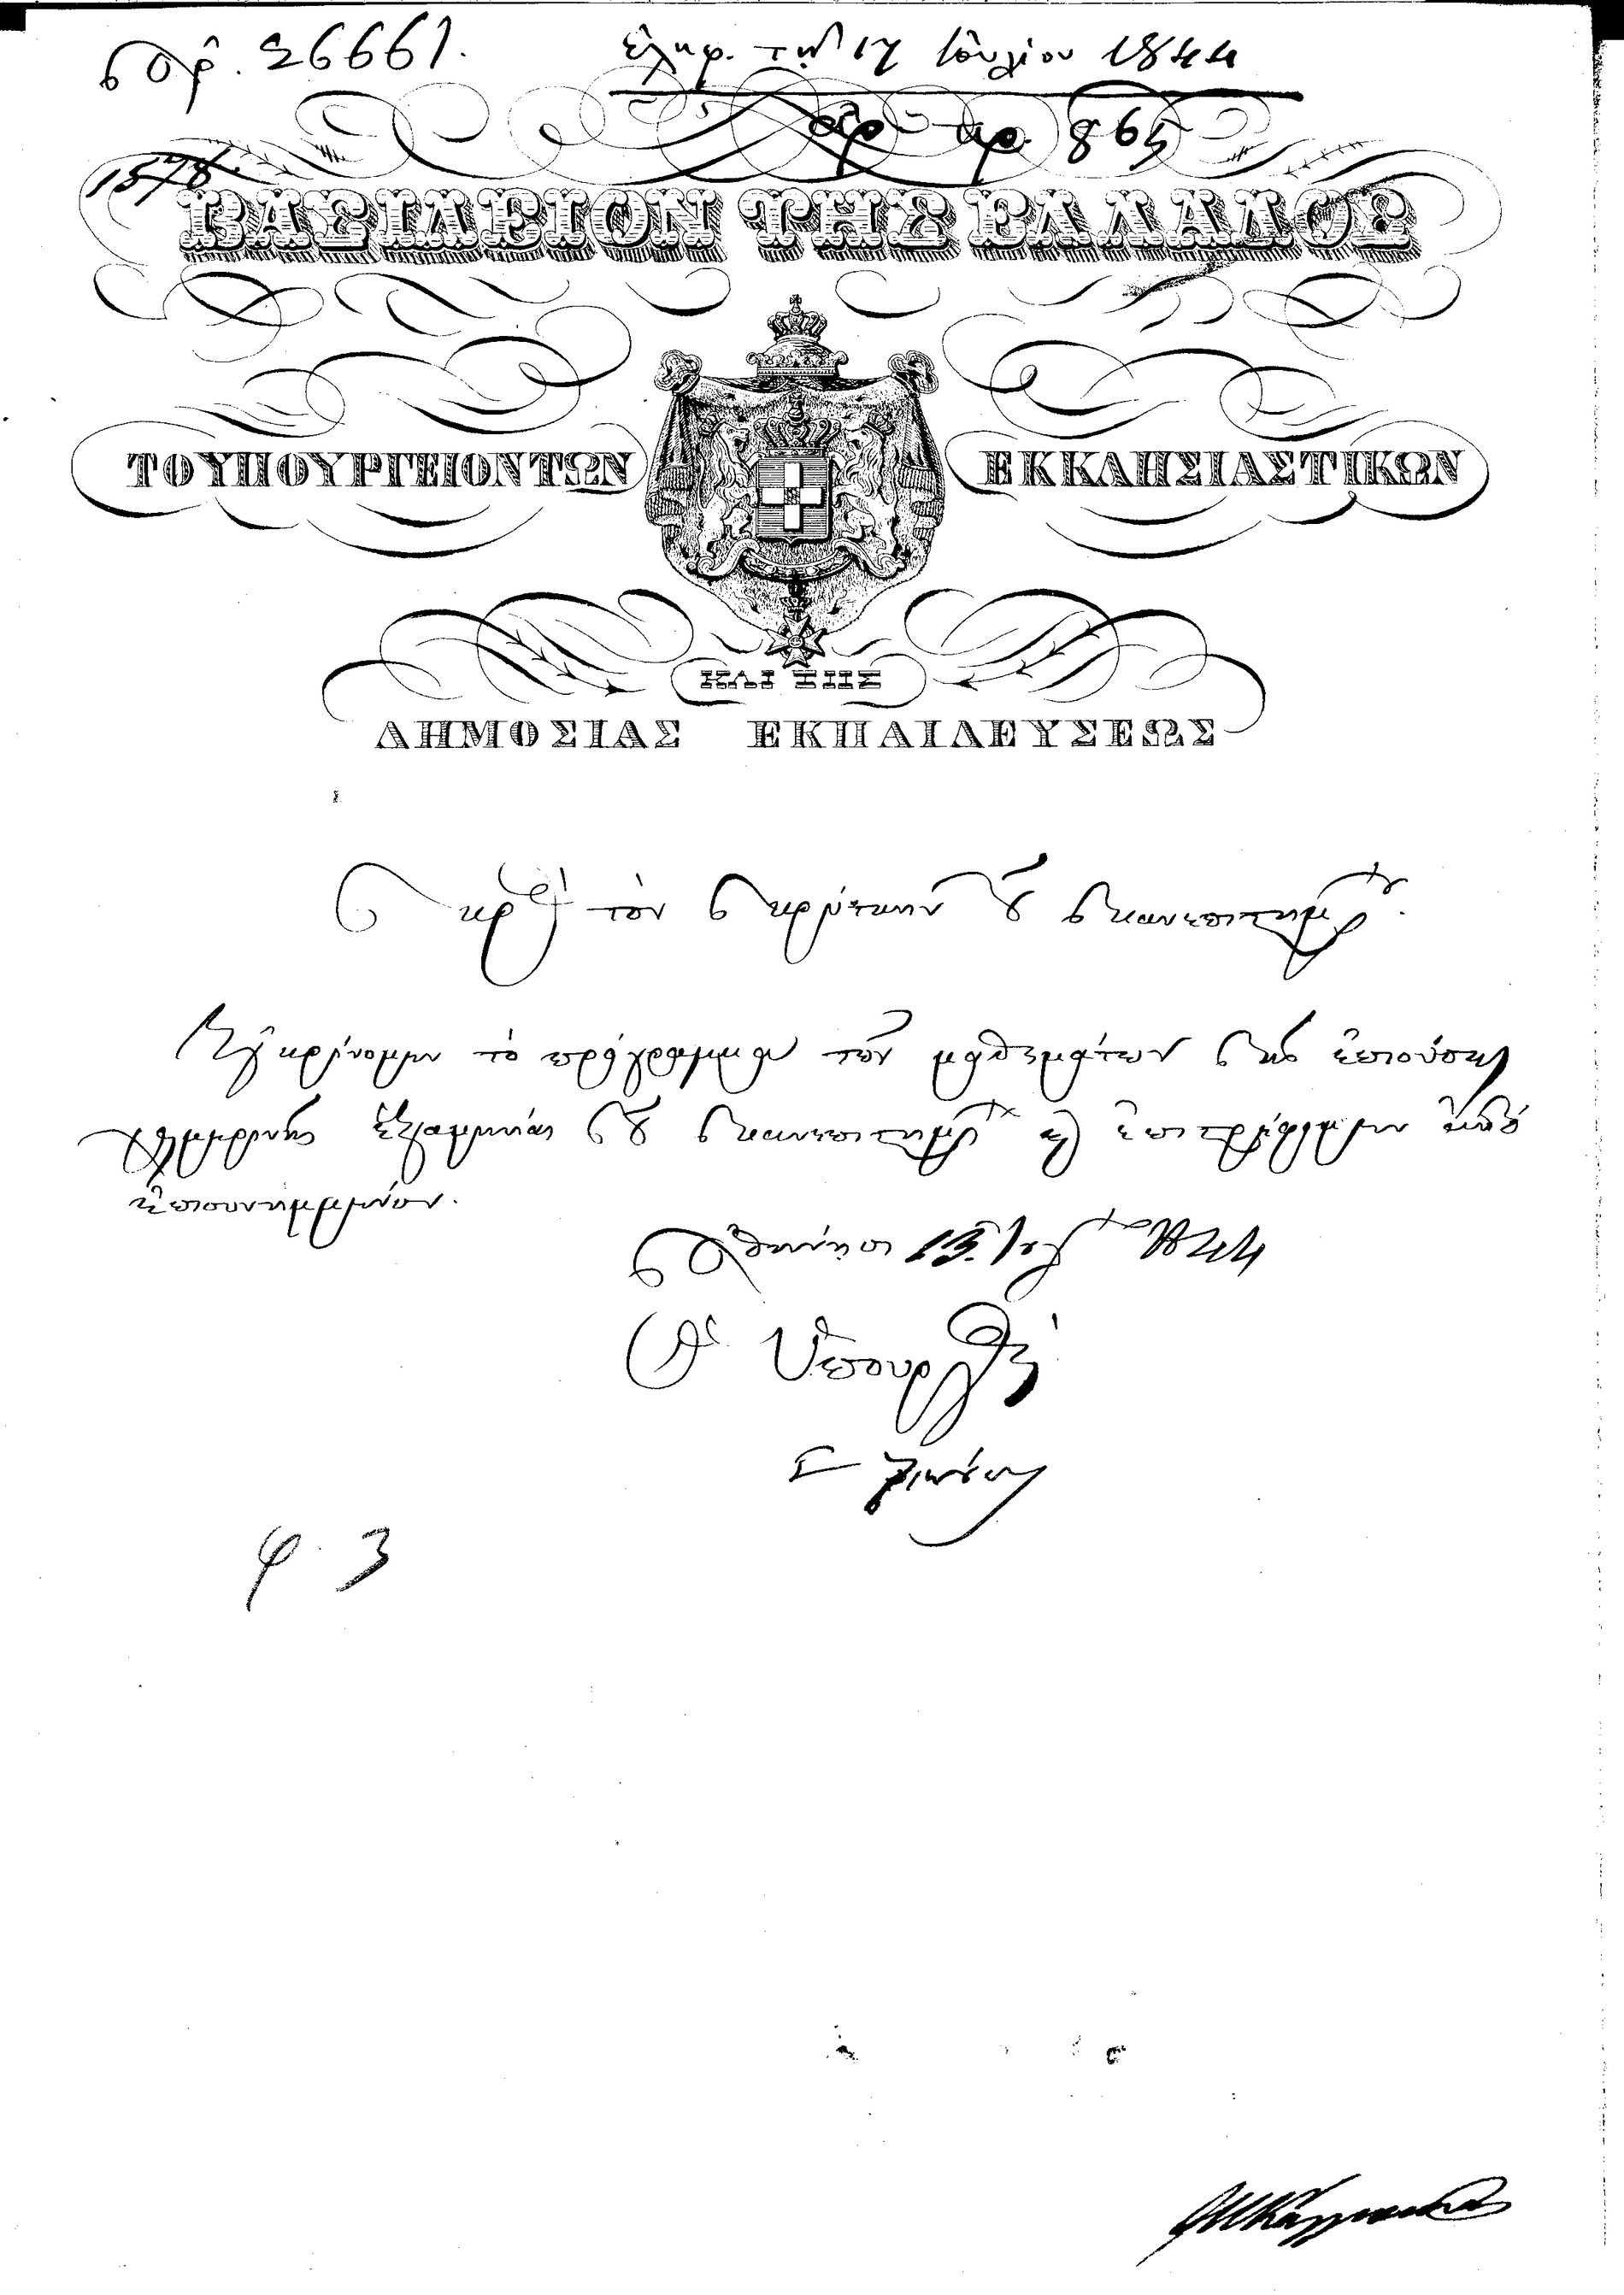 Ἀρ. 26661.
ἐλήφ. τῇ 17 Ἰουλίου 1844
ἀρ. 865
1578.
ΒΑΣΙΛΕΙΟΝ ΤΗΣ ΕΛΛΑΔΟΣ
ΤΟ ΥΠΟΥΡΓΕΙΟΝ ΤΩΝ ΕΚΚΛΗΣΙΑΣΤΙΚΩΝ
ΚΑΙ ΤΗΣ
ΔΗΜΟΣΙΑΣ ΕΚΠΑΙΔΕΥΣΕΩΣ
Πρὸς τὸν Πρύτανιν τοῦ Πανεπιστημίου.
Ἐγκρίνομεν τὸ πρόγραμμα τῶν μαθημάτων τῆς ἐπιούσης
χειμερινῆς ἑξαμηνίας τοῦ Πανεπιστημίου καὶ ἐπιστρέφομεν αὐτὸ
ἐπισυνημμένον.
Ἀθήνησι 13. 1844
Ὁ Ὑπουργὸς
φ. 3